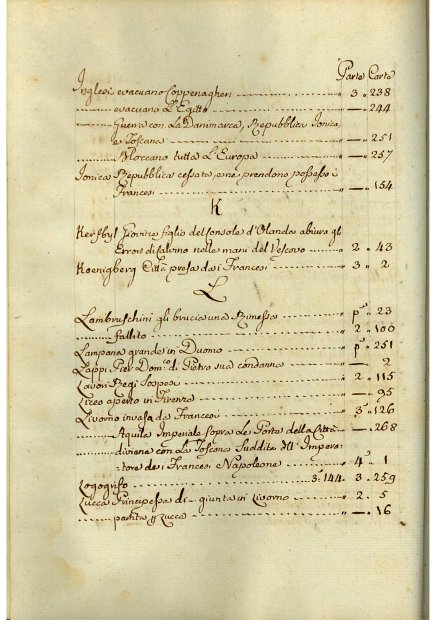 Parte Carte
Inglesi evacuano Coppenaghen ........ 3 " 238
........ evacuano L'Egitto ........ " — 244
........ Guerra con La Danimarca, Repubblica Ionica,
e Toscana ........ " — 251
........ Bloccano tutta L'Europa ........ " — 257
Ionica Repubblica cessata, e ne prendono possesso i
Francesi ........ " — 154
K
Kersbyl Giovine figlio del Console d'Olanda abiura gl
Errori di Calvino nelle mani del Vescovo ........ 2 " 43
Koenigberg Città presa da i Francesi ........ 3 " 2
L
Lambruschini gli brucia una Rimessa ........ p° " 23
........ fallito ........ 2 " 100
Lampana grande in Duomo ........ p° " 251
Lappi Pier Dom.co di Pietro sua condanna ........ " — 2
Lavori Regi Sospesi ........ 2 " 115
Liceo aperto in Firenze ........ " — 95
Livorno invasa da Francesi ........ 3 " 126
........ Aquila Imperiale sopra Le Porte della Città — 268
........ diviene con La Toscana Suddita dell' Impera=
tore de i Francesi Napoleone ........ 4° " 1
Logogrifo ........ 3. 144. 3. 259
Lucca Principessa di giunta in Livorno ........ 2. 5
........ partita p Lucca ........ " — 16